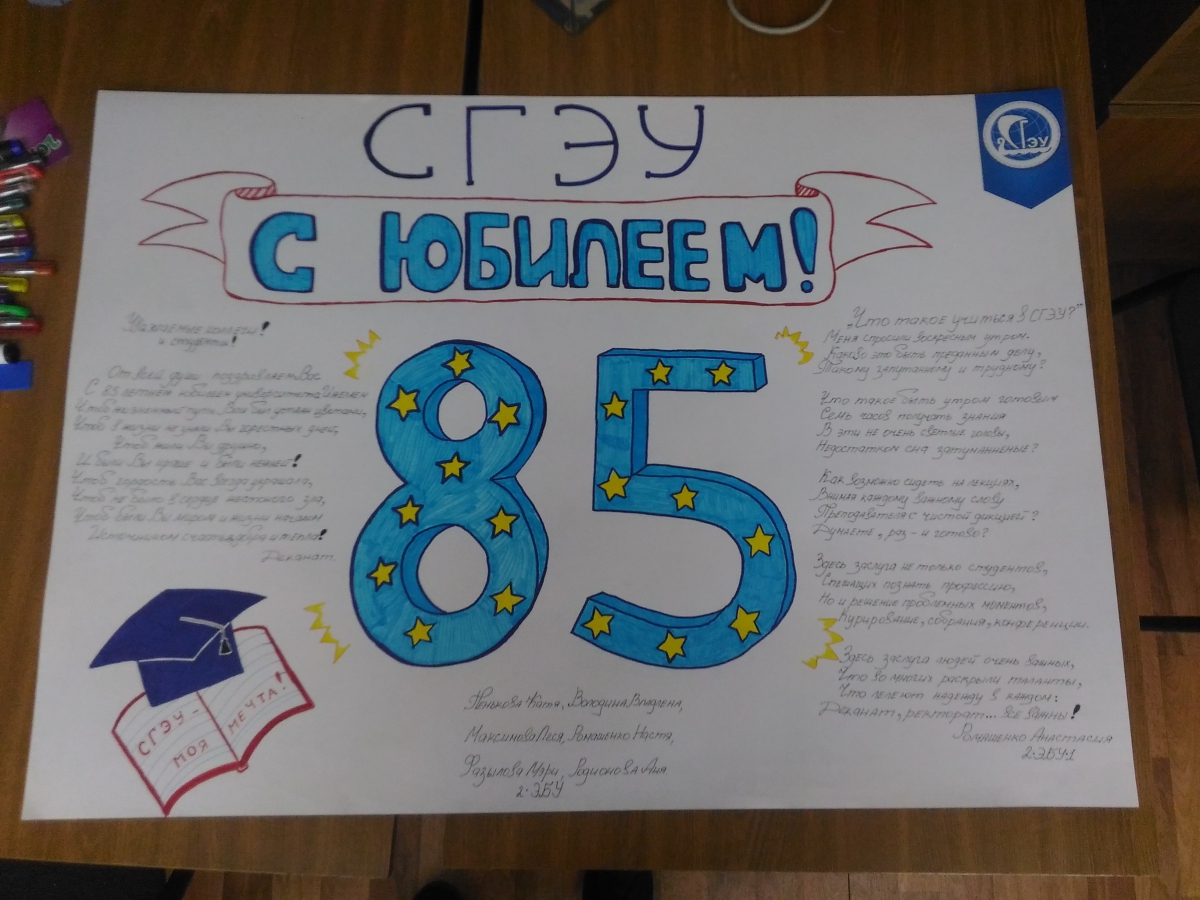 СГЭУ
С ЮБИЛЕЕМ!
ГЭУ
Уважаемые коллеги!
и студенты!
От всей души поздравляем Вас
С 85 летнем юбилеем университета
Чтоб на жизненный путь Вам был устлан цветами,
Чтоб в жизни не знали Вы горестных дней,
Чтоб жили Вы дружно,
И были Вы краше и были нежней!
Чтоб гордость Вас всегда украшала,
Чтоб не было в сердце жестокого зла,
Чтоб были Вы миром и жизни началом
Источником счастья, добра и тепла!
Деканат.
85
СГЭУ -
МОЯ МЕЧТА!
„Что такое учиться в СГЭУ?"
Меня спросили воскресным утром.
Каково это быть преданным делу,
Такому запутанному и трудному?
Что такое быть утром готовым
Семь часов получать знания
В эти не очень светлые головы,
Недостатком сна затуманненые?
Как возможно сидеть на лекциях,
Внимая каждому важному слову
Преподавателя с чистой дикцией?
Думаете, раз - и готово?
Здесь заслуга не только студентов,
Спешащих познать профессию,
Но и решение проблемных моментов,
Курирование, собрания, конференции.
Здесь заслуга людей очень важных,
Что во многих раскрыли таланты,
Что лелеют надежду в каждом:
Деканат, ректорат... все важны!
Ромашенко Анастасия
2-ЭБУ1
Пенькова Катя, Володина Владлена,
Максимова Леся, Ромашенко Настя,
Разылова Мэри, Родионова Аня
2-ЭБУ